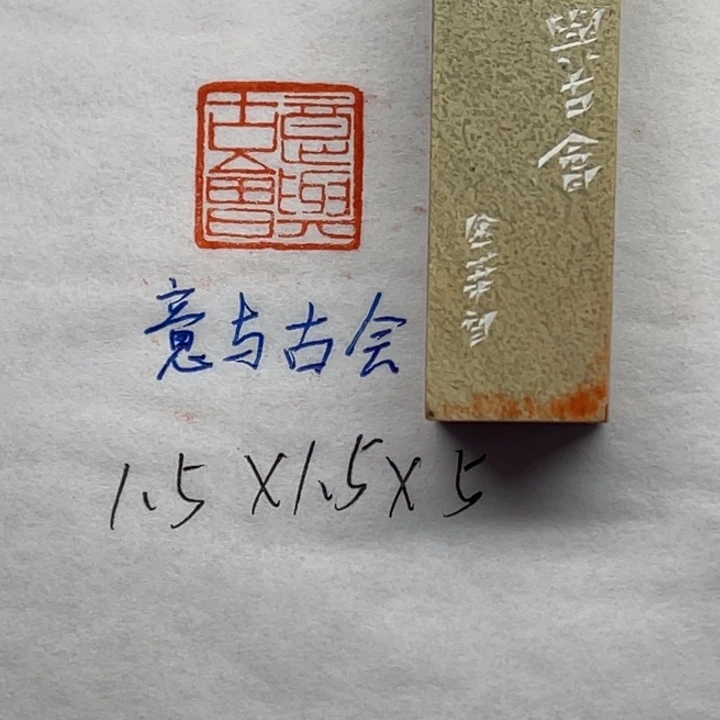 意與古會
意与古会
1.5×1.5×5
與古會